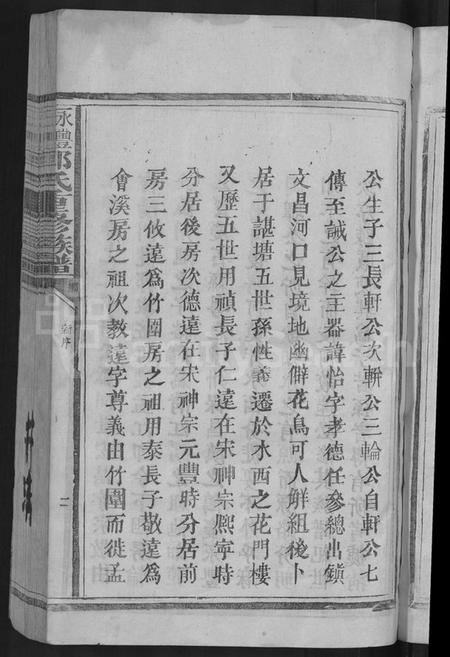 公生子三長軒公次輧公三輪公自軒公七
傳至誠公之主器諱怡字孝德任參總出鎮
文昌河口見境地幽僻花鳥可人解組後卜
居于諶塘五世孫性義遷於水西之花門樓
又歷五世用禎長子仁遠在宋神宗熙寧時
分居後房次德遠在宋神宗元豐時分居前
房三攸遠爲竹園房之祖用泰長子敬遠爲
會溪房之祖次敎遠字尊義由竹園而徙孟
永豐郭氏重修族譜
新序
二